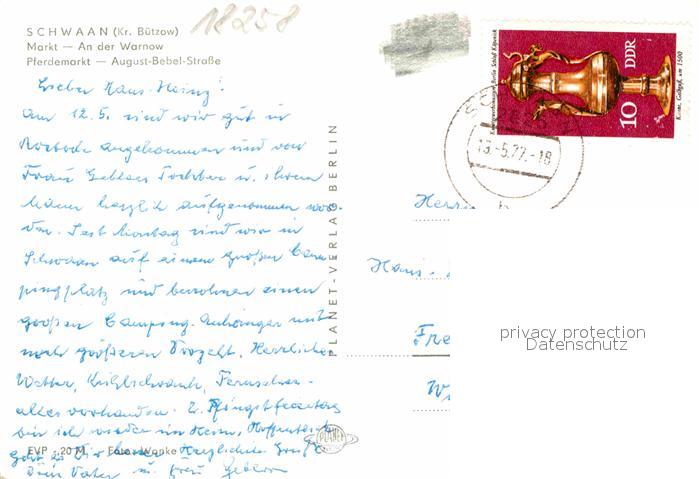 SCHWAAN (Kr. Bützow)
18258
Markt — An der Warnow
Pferdemarkt — August-Bebel-Straße
Lieber Hans-Heinz!
Am 12.5. sind wir gut in
Rostock angekommen und von
Frau Tochter u. ihrem
Mann herzlich aufgenommen wor-
den. Seit Montag sind wir in
Schwaan auf einem großen Cam-
pingplatz und bewohnen einen
großen Camping-Anhänger mit
noch größeren Vorzelt. Herrliches
Wetter, Kühlschrank, Fernseher -
alles vorhanden. 2. Pfingstfeiertag
bin ich wieder im Heim. Hoffentlich
geht es Dir Herzliche Grüße
Dein Vater u. Frau
EVP -20 M Foto: Wanke
PLANET
PLANET-VERLAG BERLIN
Kunstgewerbemuseum Berlin Schloß Köpenick
DDR
10
Kanne, Goldgefäß, um 1500
13.-5.77.-18
Herrn
Hans -
Fre
privacy protection
Datenschutz